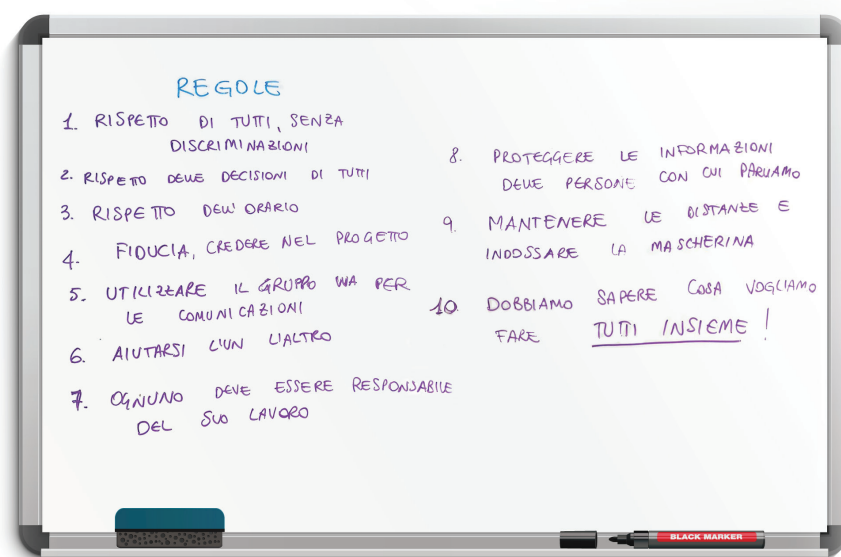 REGOLE
1. RISPETTO DI TUTTI, SENZA
DISCRIMINAZIONI
2. RISPETTO DELLE DECISIONI DI TUTTI
3. RISPETTO DELL'ORARIO
4. FIDUCIA, CREDERE NEL PROGETTO
5. UTILIZZARE IL GRUPPO WA PER
LE COMUNICAZIONI
6. AIUTARSI L'UN L'ALTRO
7. OGNUNO DEVE ESSERE RESPONSABILE
DEL SUO LAVORO
8. PROTEGGERE LE INFORMAZIONI
DELLE PERSONE CON CUI PARLIAMO
9. MANTENERE LE DISTANZE E
INDOSSARE LA MASCHERINA
10. DOBBIAMO SAPERE COSA VOGLIAMO
FARE TUTTI INSIEME!
BLACK MARKER